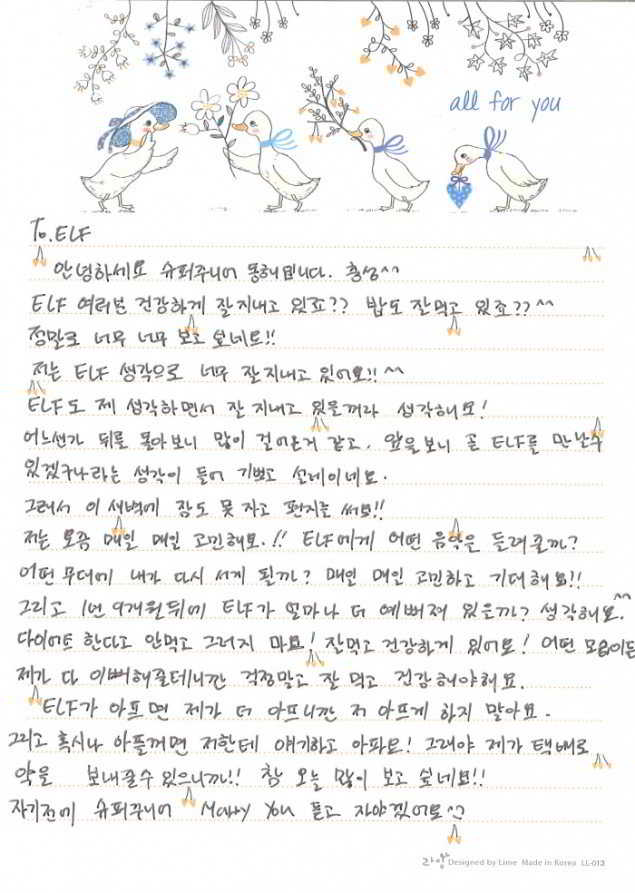 all for you
To. ELF
안녕하세요 슈퍼주니어 동해입니다. 충성^^
ELF 여러분 건강하게 잘지내고 있죠?? 밥도 잘먹고 있죠??^^
정말로 너무 너무 보고 싶네요!!
저는 ELF 생각으로 너무 잘지내고 있어요!! ^^
ELF도 제 생각하면서 잘 지내고 있을꺼라 생각해요!
어느샌가 뒤를 돌아보니 많이 걸어온거 같고, 앞을보니 곧 ELF를 만난수
있겠구나라는 생각이 들어 기쁘고 설레이네요.
그래서 이 새벽에 잠도 못 자고 편지를 써요!!
저는 요즘 매일 매일 고민해요.!! ELF에게 어떤 음악을 들려줄까?
어떤 무대에 내가 다시 서게 될까? 매일 매일 고민하고 기대해요!!
그리고 1년 9개월뒤에 ELF가 얼마나 더 예뻐져 있을까? 생각해요.^^
다이어트 한다고 안먹고 그러지 마요! 잘먹고 건강하게 있어요! 어떤 모습이든
제가 다 이뻐해줄테니깐 걱정말고 잘 먹고 건강해야해요.
ELF가 아프면 제가 더 아프니깐 저 아프게 하지 말아요.
그리고 혹시나 아플꺼면 저한테 얘기하고 아파요! 그래야 제가 택배로
약을 보내줄수 있으니까!! 참 오늘 많이 보고 싶네요!!
자기전에 슈퍼주니어 Marry You 듣고 자야겠어요^^
라임 Designed by Lime Made in Korea LL-013